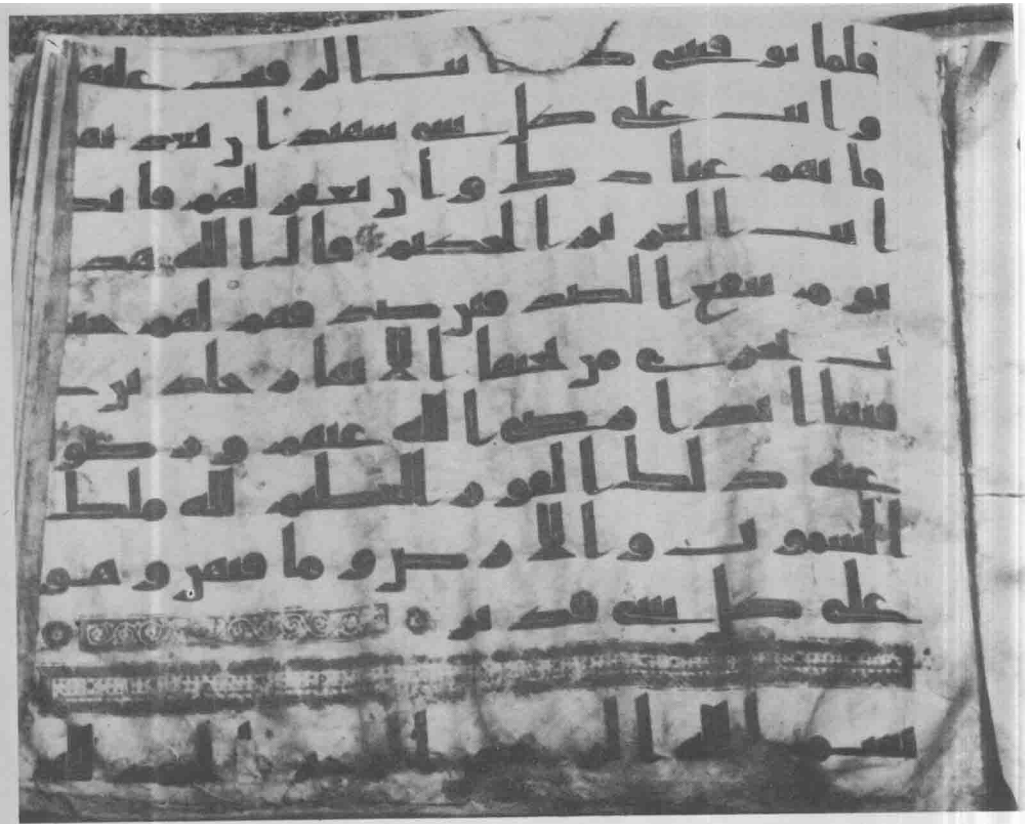 فلما توفيتني كنت انت الرقيب عليهم
وانت على كل شي شهيد ان تعذبهم
فانهم عبادك وان تغفر لهم فانك
انت العزيز الحكيم قال الله هذا
يوم ينفع الصدقين صدقهم لهم جنت
تجري من تحتها الانهار خلدين
فيها ابدا رضي الله عنهم ورضوا
عنه ذلك الفوز العظيم لله ملك
السموت والارض وما فيهن وهو
على كل شي قدير
بسم الله الرحمن الرحيم الحمد لله